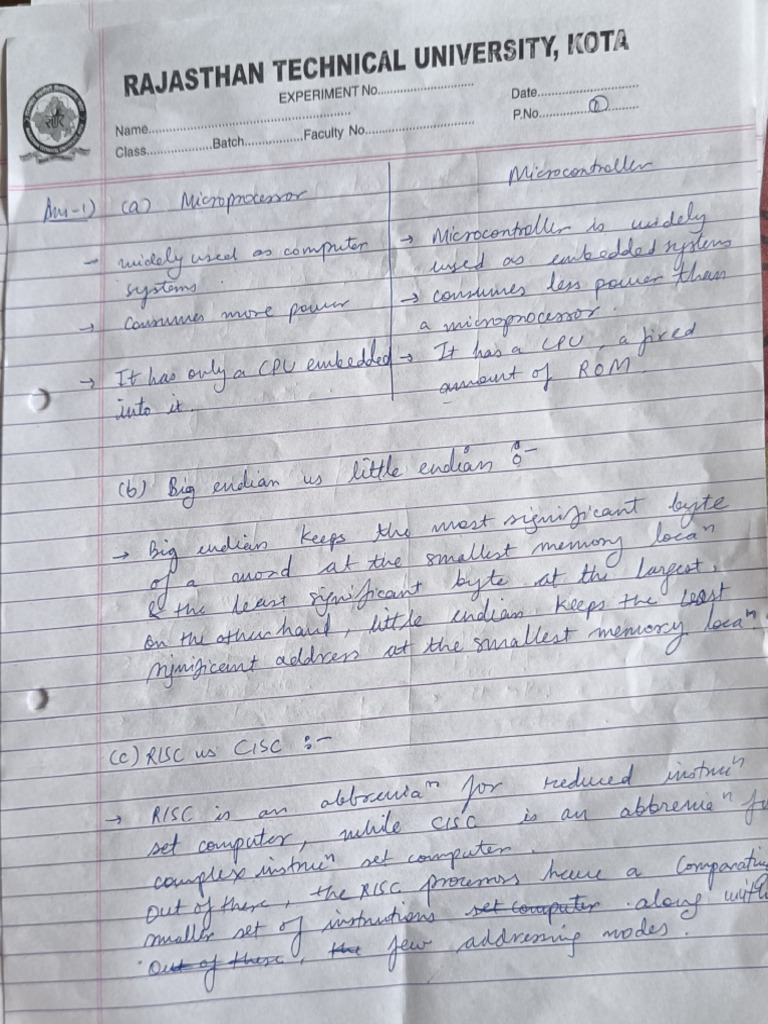 RAJASTHAN TECHNICAL UNIVERSITY, KOTA
EXPERIMENT No.............................
Date.............................
Name.............................................................
P.No..........②..........
Class..................Batch................Faculty No...............................
Ans-1) (a) Microprocessor
Microcontroller
- widely used as computer
systems.
→ Consumes more power
→ It has only a CPU embedded
into it.
→ Microcontroller is widely
used as embedded systems
→ consumes less power than
a microprocessor.
→ It has a CPU, a fixed
amount of ROM
(b) Big endian vs little endian :-
→ Big endian keeps the most significant byte
of a word at the smallest memory locaⁿ
& the least significant byte at the largest.
On the other hand, little endian keeps the least
significant address at the smallest memory locaⁿ
(c) RISC vs CISC :-
→ RISC is an abbreviaⁿ for reduced instrucⁿ
set computer, while CISC is an abbreviaⁿ fo
complex instrucⁿ set computer.
Out of these, the RISC processors have a comparativ
smaller set of instructions set computer along with
Out of these, the few addressing modes.